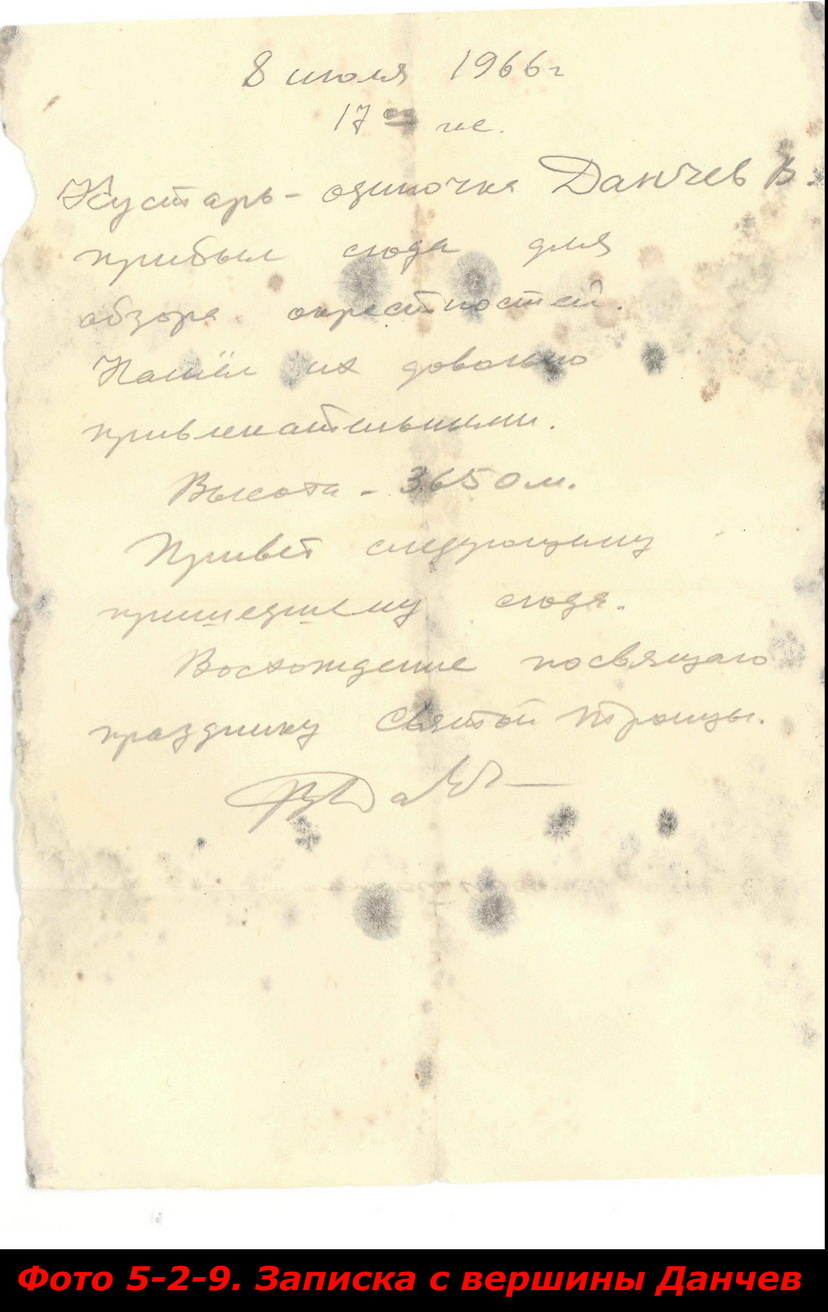 8 июля 1966г
17 00 час.
Кустарь-одиночка Данчев В.
прибыл сюда для
обзора окрестностей.
Нашёл их довольно
привлекательными.
Высота - 3650м.
Привет следующему
пришедшему сюда.
Восхождение посвящаю
празднику Святой Троицы.
Фото 5-2-9. Записка с вершины Данчев